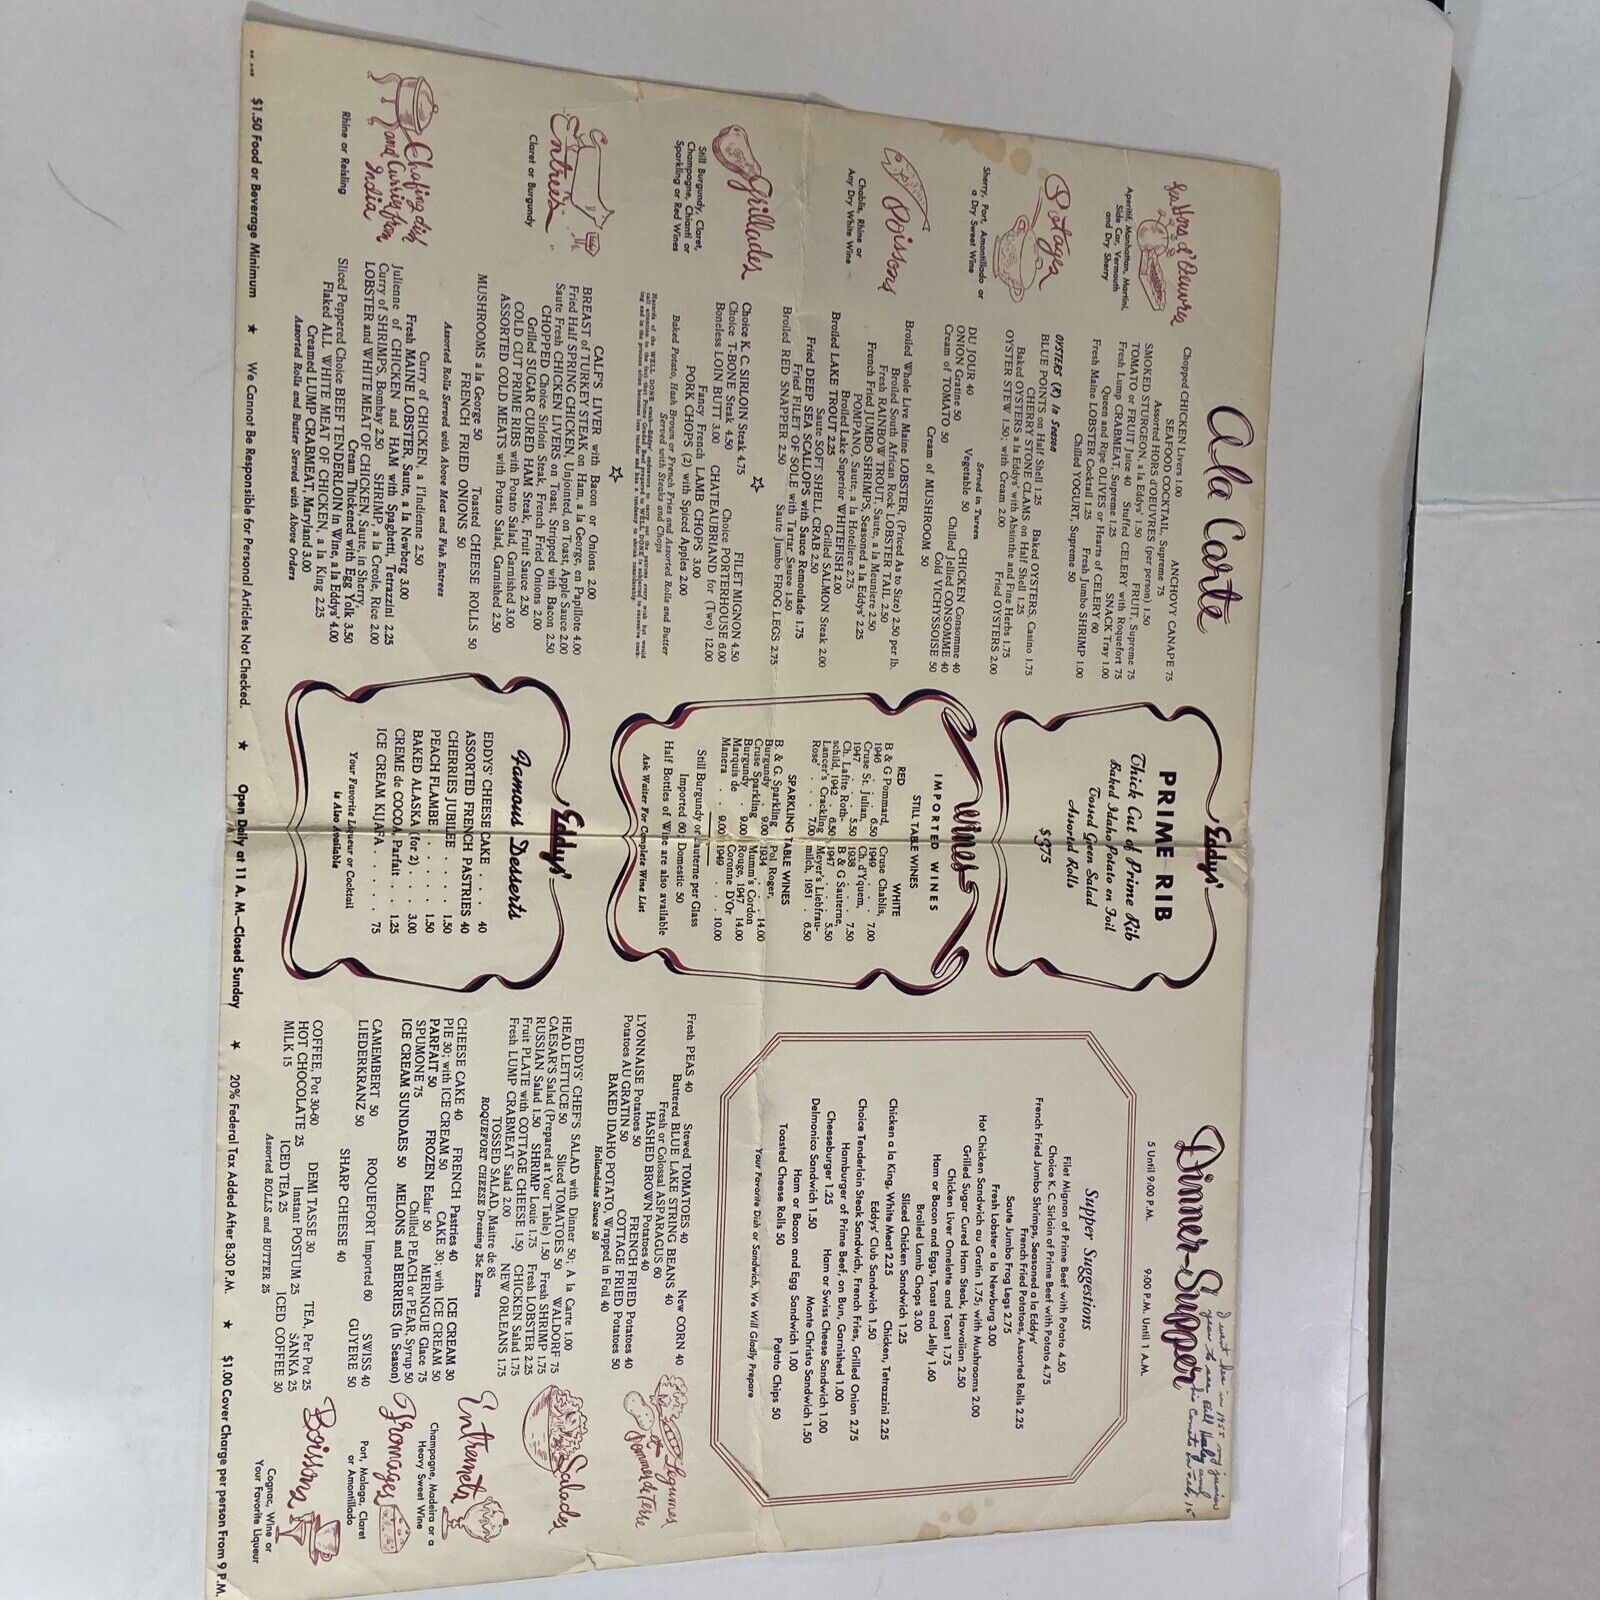 Ala Carte
Les Hors d'Oeuvres
Aperitif, Manhattan, Martini,
Side Car, Vermouth
and Dry Sherry
Chopped CHICKEN Livers 1.00 ANCHOVY CANAPE 75
SEAFOOD COCKTAIL, Supreme 75
Assorted HORS d'OEUVRES (per person) 1.50
SMOKED STURGEON, a la Eddys' 1.50 FRUIT, Supreme 75
TOMATO or FRUIT Juice 40 Stuffed CELERY with Roquefort 75
Fresh Lump CRABMEAT, Supreme 1.25 SNACK Tray 1.00
Queen and Ripe OLIVES or Hearts of CELERY 60
Fresh Maine LOBSTER Cocktail 1.25 Fresh Jumbo SHRIMP 1.00
Chilled YOGURT, Supreme 50
OYSTERS (R) In Season
BLUE POINTS on Half Shell 1.25 Baked OYSTERS, Casino 1.75
CHERRY STONE CLAMS on Half Shell 1.25
Baked OYSTERS a la Eddys' with Absinthe and Fine Herbs 1.75
OYSTER STEW 1.50; with Cream 2.00 Fried OYSTERS 2.00
Potages
Sherry, Port, Amontillado or
a Dry Sweet Wine
Served in Tureen
DU JOUR 40 Vegetable 50 CHICKEN Consomme 40
ONION Gratine 50 Chilled Jellied CONSOMME 40
Cream of TOMATO 50 Cream of MUSHROOM 50 Cold VICHYSSOISE 50
Poissons
Chablis, Rhine or
Any Dry White Wine
Broiled Whole Live Maine LOBSTER, (Priced As to Size) 2.50 per lb.
Broiled South African Rock LOBSTER TAIL 2.50
Fresh RAINBOW TROUT, Saute, a la Meuniere 2.50
French Fried JUMBO SHRIMPS, Seasoned a la Eddys' 2.25
POMPANO, Saute, a la Hoteliere 2.75
Broiled Lake Superior WHITEFISH 2.00
Broiled LAKE TROUT 2.25 Grilled SALMON Steak 2.00
Saute SOFT SHELL CRAB 2.50
Fried DEEP SEA SCALLOPS with Sauce Remoulade 1.75
Fried FILET OF SOLE with Tartar Sauce 1.50
Broiled RED SNAPPER 2.50 Saute Jumbo FROG LEGS 2.75
Grillades
Still Burgundy, Claret,
Champagne, Chianti or
Sparkling or Red Wines
Choice K. C. SIRLOIN Steak 4.75 FILET MIGNON 4.50
Choice T-BONE Steak 4.50 Choice PORTERHOUSE 6.00
Boneless LOIN BUTT 3.00 CHATEAUBRIAND for (Two) 12.00
Fancy French LAMB CHOPS 3.00
PORK CHOPS (2) with Spiced Apples 2.00
Baked Potato, Hash Brown or French Fries and Assorted Rolls and Butter
Served with Steaks and Chops
Entrees
Claret or Burgundy
CALF'S LIVER with Bacon or Onions 2.00
BREAST of TURKEY STEAK on Ham, a la George, en Papillote 4.00
Fried Half SPRING CHICKEN, Unjointed, on Toast, Apple Sauce 2.00
Saute Fresh CHICKEN LIVERS on Toast, Stripped with Bacon 2.50
CHOPPED Choice Sirloin Steak, French Fried Onions 2.00
Grilled SUGAR CURED HAM Steak, Fruit Sauce 2.50
COLD CUT PRIME RIBS with Potato Salad, Garnished 3.00
ASSORTED COLD MEATS with Potato Salad, Garnished 2.50
MUSHROOMS a la George 50 Toasted CHEESE ROLLS 50
FRENCH FRIED ONIONS 50
Assorted Rolls Served with Above Meat and Fish Entrees
Chafing dish
and Curries from
India
Rhine or Reisling
Curry of CHICKEN, a l'Indienne 2.50
Fresh MAINE LOBSTER, Saute, a la Newberg 3.00
Julienne of CHICKEN and HAM with Spaghetti, Tetrazzini 2.25
Curry of SHRIMPS, Bombay 2.50 SHRIMP, a la Creole, Rice 2.00
LOBSTER and WHITE MEAT OF CHICKEN, Saute, in Sherry,
Cream Thickened with Egg Yolk 3.50
Sliced Peppered Choice BEEF TENDERLOIN in Wine, a la Eddys' 4.00
Flaked ALL WHITE MEAT OF CHICKEN, a la King 2.25
Creamed LUMP CRABMEAT, Maryland 3.00
Assorted Rolls and Butter Served with Above Orders
Eddys'
PRIME RIB
Thick Cut of Prime Rib
Baked Idaho Potato en Foil
Tossed Green Salad
Assorted Rolls
$3.75
Wines
IMPORTED WINES
STILL TABLE WINES
RED
B & G Pommard,
1946 . . . 6.50
Cruse St. Julian,
1947 . . . 5.50
Ch. Lafite Roth-
schild, 1942 . 6.50
Lancer's Crackling
Rose' . . . 7.00
WHITE
Cruse Chablis,
1949 . . . 7.00
Ch. d'Yquem,
1938 . . . 7.50
B & G Sauterne,
1947 . . . 5.50
Meyer's Liebfrau-
milch, 1951 . 6.50
SPARKLING TABLE WINES
B & G Sparkling
Burgundy . . 9.00
Cruse Sparkling
Burgundy . . 9.00
Marquis de
Manera . . . 9.00
Pol Roger,
1934 . . . 14.00
Mumm's Cordon
Rouge, 1947 14.00
Coronne D'Or
1949 . . . 10.00
Still Burgundy or Sauterne per Glass
Imported 60; Domestic 50
Half Bottles of Wine are also available
Ask Waiter For Complete Wine List
Eddys'
Famous Desserts
EDDYS' CHEESE CAKE . . . . 40
ASSORTED FRENCH PASTRIES 40
CHERRIES JUBILEE . . . . 1.50
PEACH FLAMBE . . . . . 1.50
BAKED ALASKA (for 2) . . . 3.00
CREME de COCOA, Parfait . . 1.25
ICE CREAM KIJAFA . . . . . 75
Your Favorite Liqueur or Cocktail
is Also Available
Dinner-Supper
5 Until 9:00 P.M. 9:00 P.M. Until 1 A.M.
in 1955 my junior
year to see Bill Haley and
his Comets
Supper Suggestions
Filet Mignon of Prime Beef with Potato 4.50
Choice K. C. Sirloin of Prime Beef with Potato 4.75
French Fried Potatoes, Assorted Rolls 2.25
French Fried Jumbo Shrimps, Seasoned a la Eddys'
Saute Jumbo Frog Legs 2.75
Fresh Lobster a la Newburg 3.00
Hot Chicken Sandwich au Gratin 1.75; with Mushrooms 2.00
Grilled Sugar Cured Ham Steak, Hawaiian 2.50
Chicken Liver Omelette and Toast 1.75
Ham or Bacon and Eggs, Toast and Jelly 1.60
Broiled Lamb Chops 3.00
Sliced Chicken Sandwich 1.25
Chicken a la King, White Meat 2.25 Chicken, Tetrazzini 2.25
Eddys' Club Sandwich 1.50
Choice Tenderloin Steak Sandwich, French Fries, Grilled Onion 2.75
Hamburger of Prime Beef, on Bun, Garnished 1.00
Cheeseburger 1.25 Ham or Swiss Cheese Sandwich 1.00
Delmonico Sandwich 1.50 Monte Christo Sandwich 1.50
Ham or Bacon and Egg Sandwich 1.00
Toasted Cheese Rolls 50 Potato Chips 50
Your Favorite Dish or Sandwich, We Will Gladly Prepare
Legumes
et Pommes de Terre
Fresh PEAS 40 Stewed TOMATOES 40 New CORN 40
Buttered BLUE LAKE STRING BEANS 40
Fresh or Colossal ASPARAGUS 60
HASHED BROWN Potatoes 40
LYONNAISE Potatoes 50 FRENCH FRIED Potatoes 40
Potatoes AU GRATIN 50 COTTAGE FRIED Potatoes 50
BAKED IDAHO POTATO, Wrapped in Foil 40
Hollandaise Sauce 50
Salades
EDDYS' CHEF'S SALAD with Dinner 50; A la Carte 1.00
HEAD LETTUCE 50 Sliced TOMATOES 50 WALDORF 75
CAESAR'S Salad (Prepared at Your Table) 1.50 Fresh SHRIMP 1.75
RUSSIAN Salad 1.50 SHRIMP Louie 1.75 Fresh LOBSTER 2.25
Fruit PLATE with COTTAGE CHEESE 1.50 CHICKEN Salad 1.75
Fresh LUMP CRABMEAT Salad 2.00 NEW ORLEANS 1.75
TOSSED SALAD, Maitre de 85
ROQUEFORT CHEESE Dressing 35c Extra
Entremets
Champagne, Madeira or a
Heavy Sweet Wine
CHEESE CAKE 40 FRENCH Pastries 40 ICE CREAM 30
PIE 30; with ICE CREAM 50 CAKE 30; with ICE CREAM 50
PARFAIT 50 FROZEN Eclair 50 MERINGUE Glace 75
SPUMONE 75 Chilled PEACH or PEAR, Syrup 50
ICE CREAM SUNDAES 50 MELONS and BERRIES (In Season)
Fromages
Port, Malaga, Claret
or Amontillado
CAMEMBERT 50 ROQUEFORT Imported 60 SWISS 40
LIEDERKRANZ 50 SHARP CHEESE 40 GUYERE 50
Boissons
Cognac, Wine or
Your Favorite Liqueur
COFFEE, Pot 30-60 DEMI TASSE 30 TEA, Per Pot 25
HOT CHOCOLATE 25 Instant POSTUM 25 SANKA 25
MILK 15 ICED TEA 25 ICED COFFEE 30
Assorted ROLLS and BUTTER 25
$1.50 Food or Beverage Minimum ★ We Cannot Be Responsible for Personal Articles Not Checked. ★ Open Daily at 11 A. M.—Closed Sunday ★ 20% Federal Tax Added After 8:30 P.M. ★ $1.00 Cover Charge per person From 9 P.M.